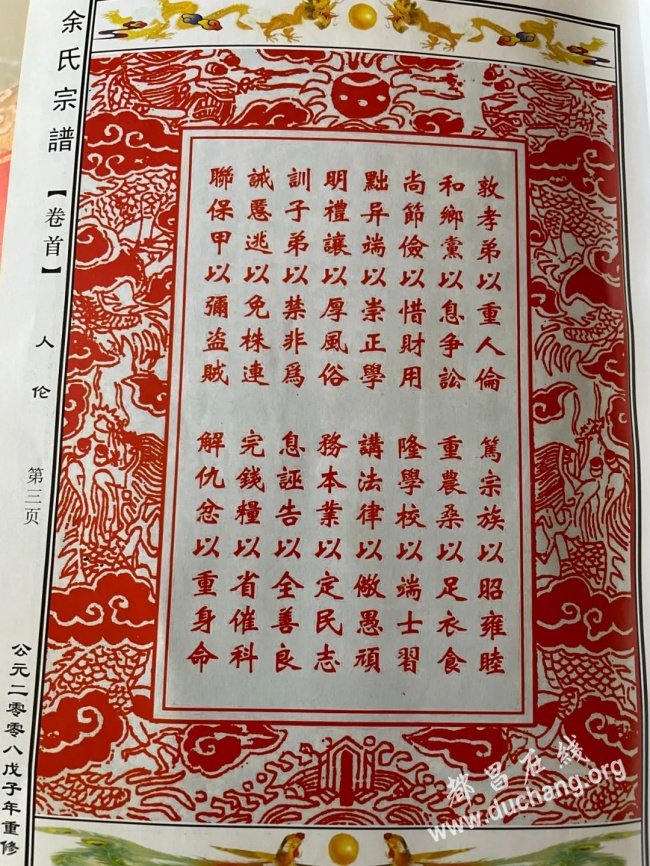 余氏宗譜
【卷首】
人伦
第三页
公元二零零八戊子年重修
敦孝弟以重人倫
篤宗族以昭雍睦
和鄉黨以息争訟
重農桑以足衣食
尚節儉以惜財用
隆學校以端士習
黜异端以崇正學
講法律以儆愚頑
明禮讓以厚風俗
務本業以定民志
訓子弟以禁非爲
息誣告以全善良
誡慝逃以免株連
完錢糧以省催科
聯保甲以彌盜賊
解仇忿以重身命
都昌在线
www.duchang.org